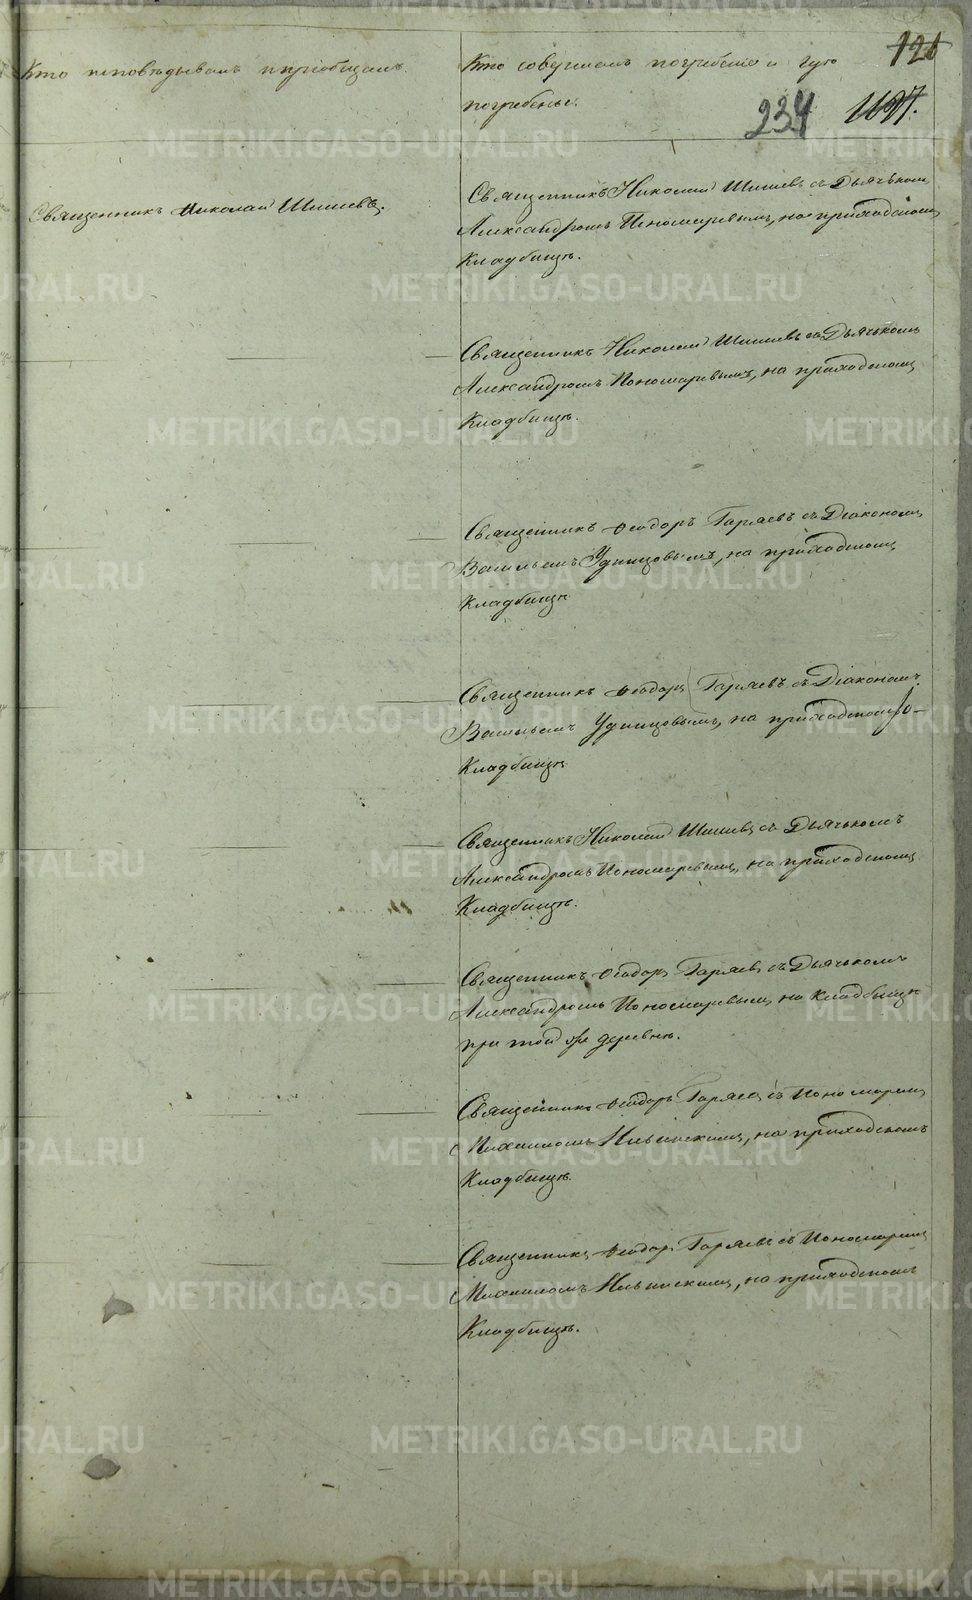 121
234 1127.
Кто исповѣдывалъ и пріобщалъ.
Кто совершалъ погребеніе и гдѣ
погребены.
Священникъ Николай Шишевъ.
Священникъ Николай Шишевъ съ Дьячькомъ
Александромъ Пономаревымъ, на приходскомъ
Кладбищѣ.
Священникъ Николай Шишевъ съ Дьячькомъ
Александромъ Пономаревымъ, на приходскомъ
Кладбищѣ.
Священникъ Ѳеодоръ Гаряевъ съ Діакономъ
Васильемъ Удинцовымъ, на приходскомъ
Кладбищѣ
Священникъ Ѳеодоръ Гаряевъ съ Діакономъ
Васильемъ Удинцовымъ, на приходскомъ
Кладбищѣ
Священникъ Николай Шишевъ съ Дьячькомъ
Александромъ Пономаревымъ, на приходскомъ
Кладбищѣ.
Священникъ Ѳеодоръ Гаряевъ съ Дьячькомъ
Александромъ Пономаревымъ, на кладбищѣ
при той же деревнѣ.
Священникъ Ѳеодоръ Гаряевъ съ Пономаремъ
Михаиломъ, на приходскомъ
Кладбищѣ.
Священникъ Ѳеодоръ Гаряевъ съ Пономаремъ
Михаиломъ, на приходскомъ
Кладбищѣ.
METRIKI.GASO-URAL.RU